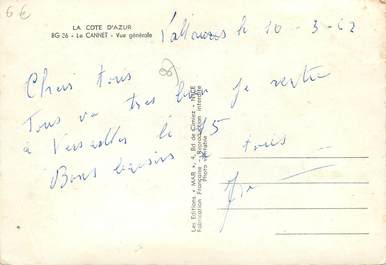 6€
LA COTE D'AZUR
BG 26 - Le CANNET - Vue générale
Vallauris le 10-3-62
Chers tous
Tous va très bien je rentre
à Versailles le 15
Bons baisers à tous
Les Editions « MAR », 4, Bd de Cimiez - NICE
Fabrication Française - Reproduction interdite
Photo véritable